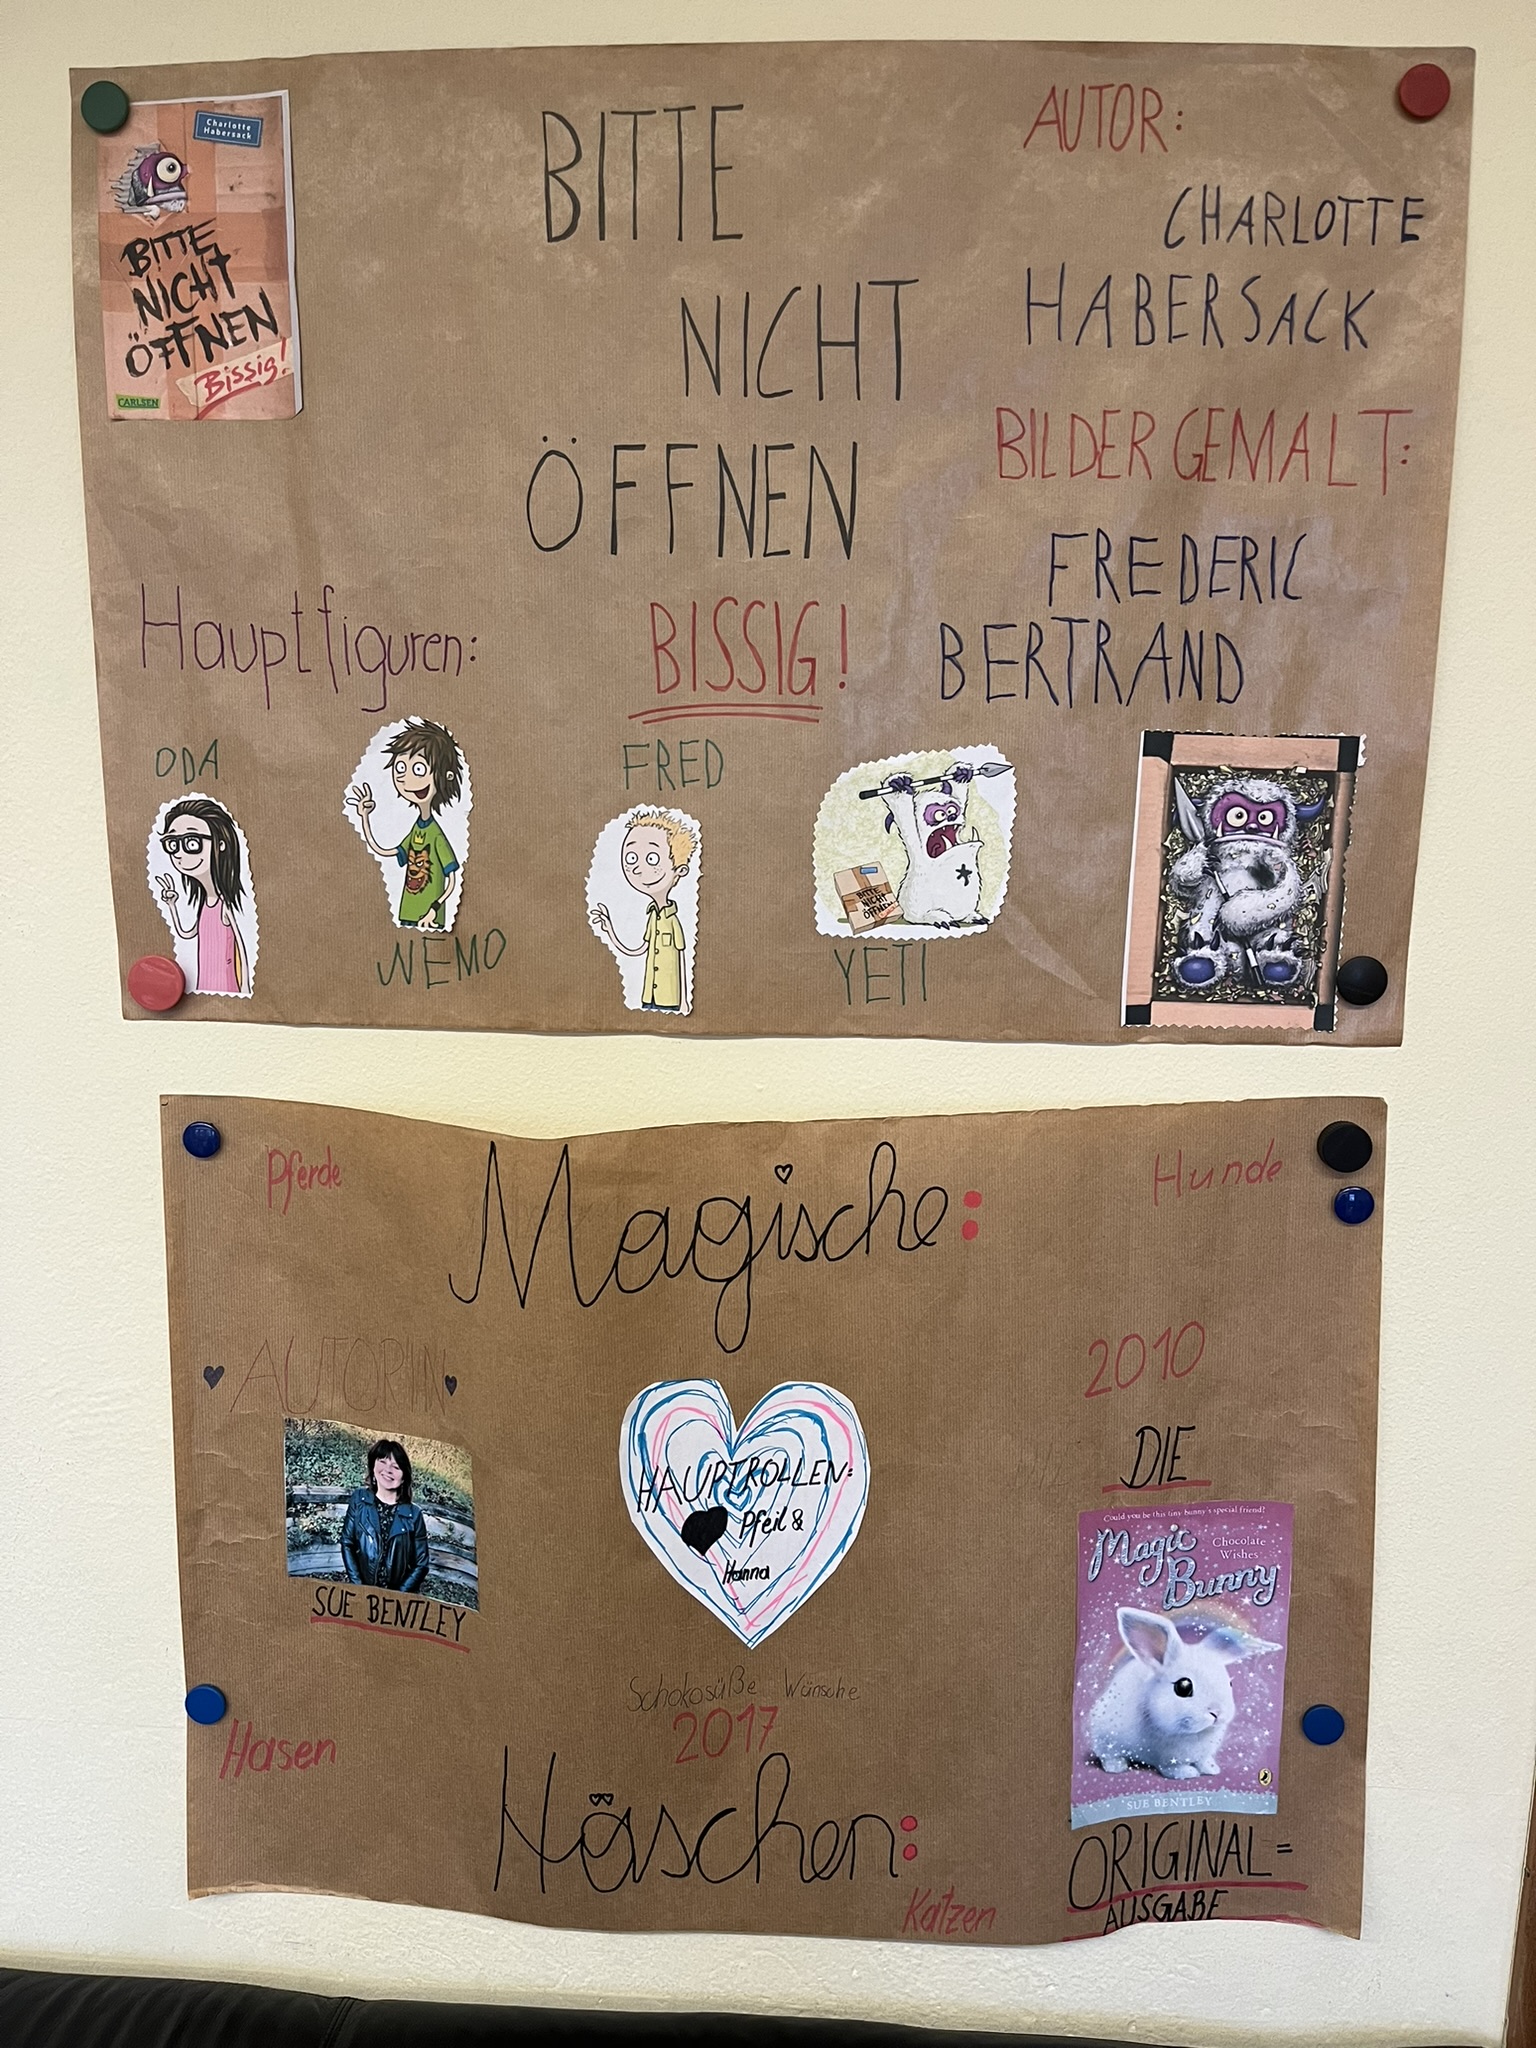 Charlotte
Habersack
BITTE
NICHT
ÖFFNEN
Bissig!
CARLSEN
BITTE
NICHT
ÖFFNEN
BISSIG!
AUTOR:
CHARLOTTE
HABERSACK
BILDER GEMALT:
FREDERIC
BERTRAND
Hauptfiguren:
ODA
NEMO
FRED
YETI
BITTE
NICHT
ÖFFNEN
Pferde
Magische:
Hunde
AUTORIN
SUE BENTLEY
HAUPTROLLEN:
Pfeil &
Hanna
2010
DIE
Could you be this tiny bunny's special friend?
Magic
Bunny
Chocolate
Wishes
SUE BENTLEY
ORIGINAL=
AUSGABE
Schokosüße Wünsche
2017
Hasen
Häschen:
Katzen